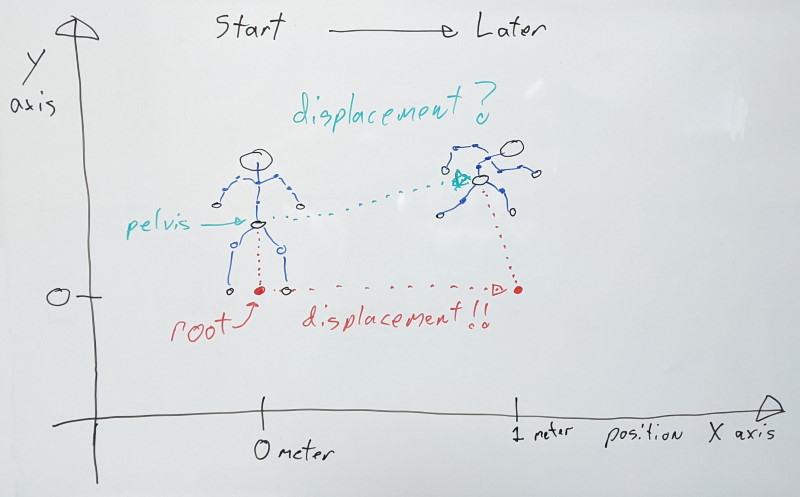 Start Later
Y
axis
displacement?
pelvis
0
root
displacement!!
0 meter
1 meter position X axis